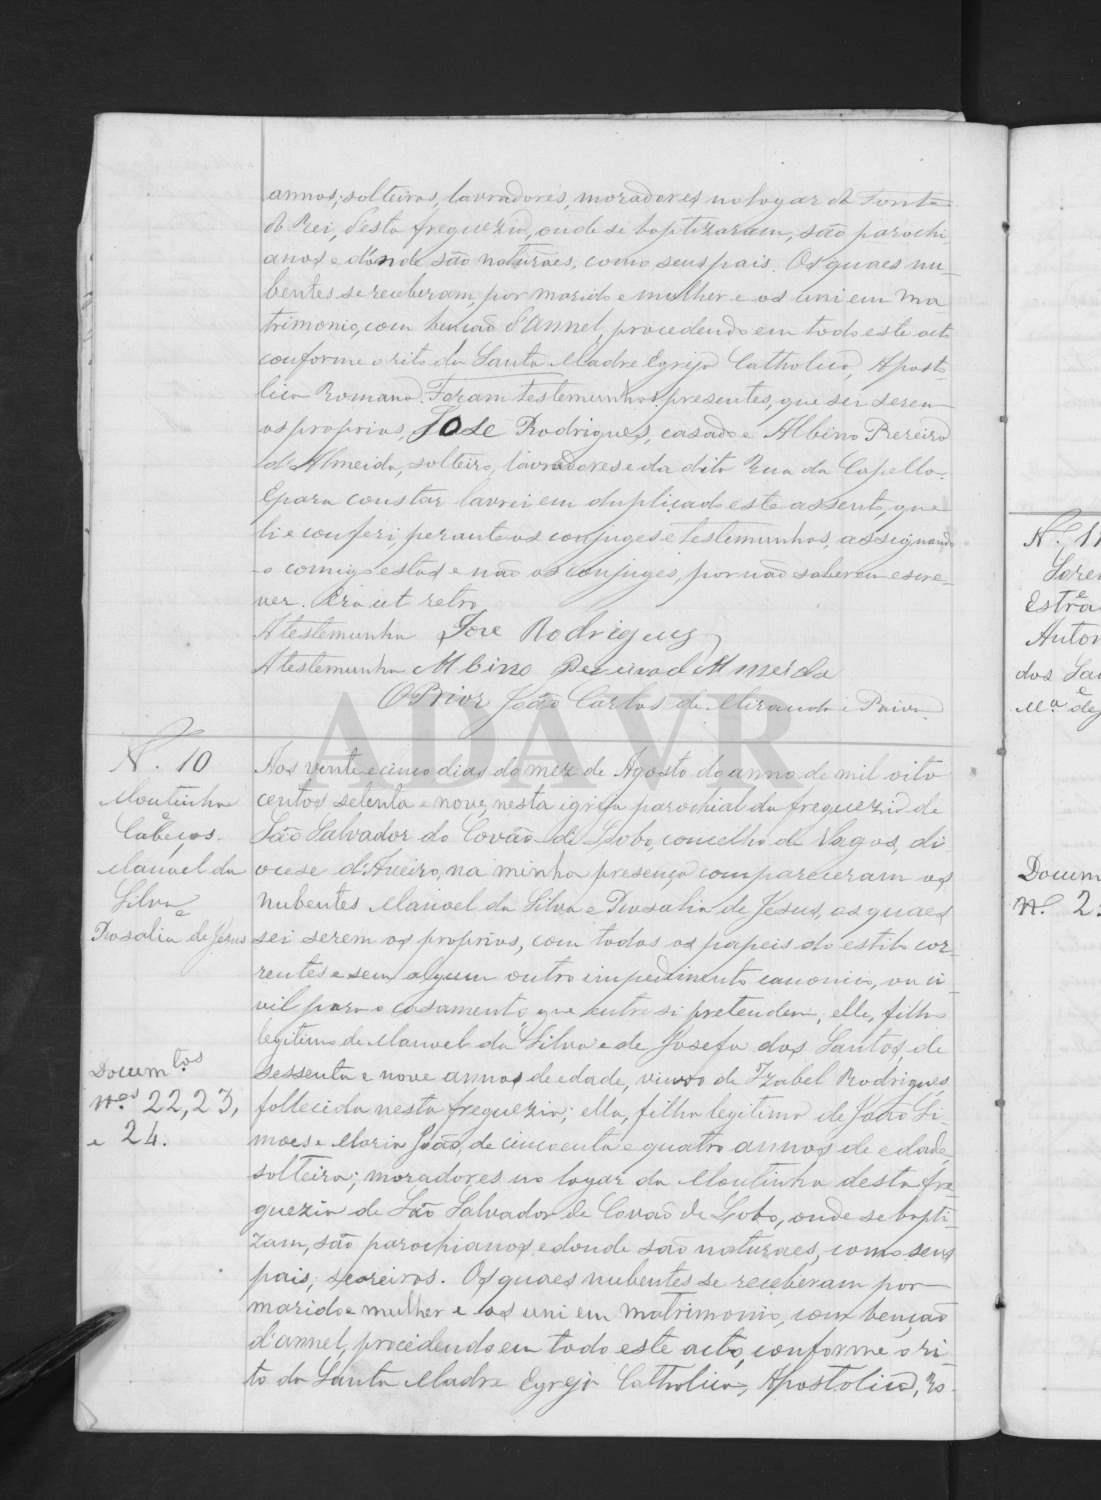 annos, solteiros, lavradores, moradores no logar da Fonte
do Rei, desta freguezia, onde se baptizaram, são parochi
anos e donde são naturaes, como seus pais. Os quaes nu-
bentes se receberam por marido e mulher e os uni em Ma
trimonio, com benção d'annel, procedendo em todo este acto
conforme o rito da Santa Madre Egreja Catholica, Aposto
lica Romana. Foram testemunhas presentes, que sei serem
os proprios, José Rodrigues, casado e Albino Pereira
d'Almeida, solteiro, lavradores e da dita Rua da Capella.
E para constar lavrei em duplicado este assento, que
li e conferi, perante os conjuges e testemunhas, assignando
-o comigo estas e não os conjuges, por não saberem escre-
ver. Era ut retro.
A testemunha José Rodrigues
A testemunha Albino Pereira d'Almeida
O Prior João Carlos de Miranda e Paiva
N. 10
Moutinha
e
Cabeços.
Manoel da
Silva
e
Rosalia de Jesus
Docum.tos
N.os 22, 23,
e 24.
Aos vinte e cinco dias do mez de Agosto do anno de mil oito
centos setenta e nove, nesta igreja parochial da freguezia de
São Salvador do Covão do Lobo, concelho de Vagos, di-
ocese d'Aveiro, na minha presença compareceram os
nubentes Manoel da Silva e Rosalia de Jesus, os quaes
sei serem os proprios, com todos os papeis do estilo cor-
rentes e sem algum outro impedimento canonico, ou ci-
vil para o casamento que entre si pretendem, elle, filho
legitimo de Manoel da Silva e de Josefa dos Santos, de
sessenta e nove annos de edade, viuvo de Izabel Rodrigues,
fallecida nesta freguezia; ella, filha legitima de João Si-
moes e Maria João, de cincoenta e quatro annos de edade,
solteira; moradores no logar da Moutinha desta fre-
guezia de São Salvador de Covão de Lobo, onde se bapti-
zam, são parochianos, e donde são naturaes, como seus
pais, seareiros. Os quaes nubentes se receberam por
marido e mulher e os uni em matrimonio, com benção
d'annel, procedendo em todo este acto, conforme o ri-
to da Santa Madre Egreja Catholica, Apostolica, Ro-
ADAVR
N. 11
e
Estra
Anton
dos San
e
M.a de J
Docum
N.